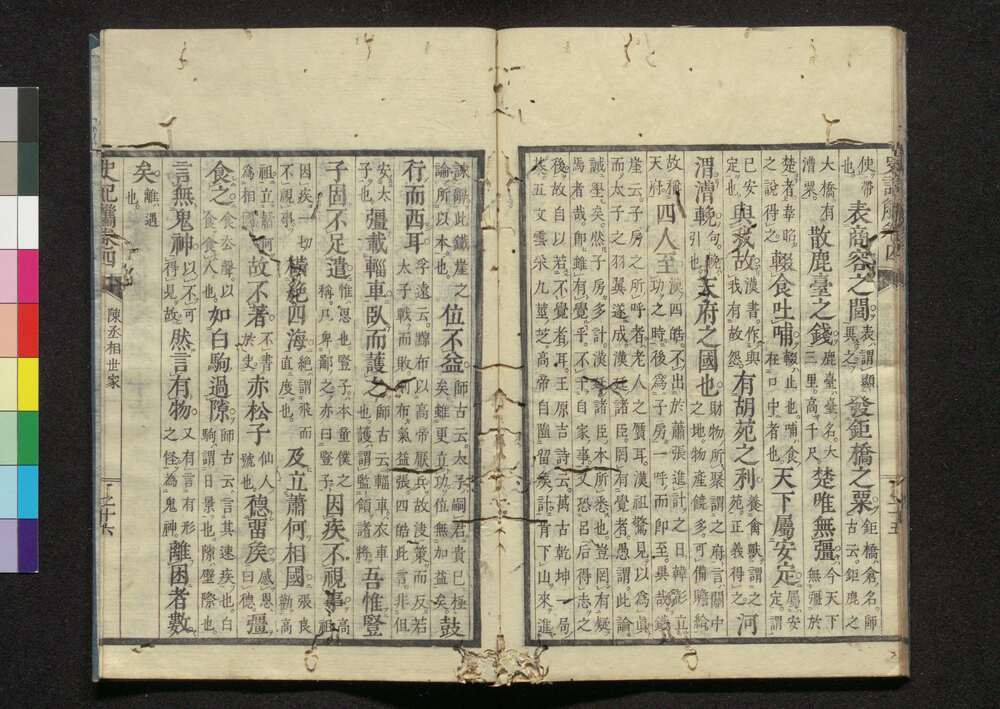 使帶也表商容之閭表謂顯異之發鉅橋之粟鉅橋倉名師古云鉅鹿之
大橋有漕粟散鹿臺之錢鹿臺臺名大三里高千尺楚唯無彊今天下無彊於
楚者韋昭之說得之輟食吐哺輟止也哺食在口中者也天下屬安定屬安定謂
已安定也與我故漢書作與我有故怨有胡苑之利養禽獸謂之苑正義得之河
渭漕輓句輓引也天府之國也財物所聚謂之府言關中之地物産饒多可備贍給
故稱天府四人至漢四皓不出於蕭張進計之日韓彭立功之時後爲子房一呼而即至異哉鐵
崖云子房之所呼者老人之贗耳漢祖驚見以爲眞而太子之羽翼遂成漢廷諸臣罔有覺者愚謂此論
誠堅矣然子房多計漢廷諸臣本所悉也豈罔有疑焉者哉即雖有覺乎不干自家事又恐呂后得志之
後故自不覺者耳王原吉詩云萬古乾坤一局棊五文雲采九莖芝高帝自臨留侯計肯下山來進
詠辭此鐵崖之論所以本也位不益師古云太子嗣君貴已極矣雖更立功位無加益矣鼓
行而西耳孚遠云黥布以高帝厭兵故決策而反若太子戰而敗則布氣益張四皓此言非但
安太子也彊載輜車臥而護之師古云輜車衣車也護謂監領諸將吾惟豎
子固不足遣惟思也豎子本童僕之稱凡卑鄙之亦曰豎子因疾不視事高祖
因疾一切不視事橫絕四海絕謂飛而直度也及立蕭何相國張良勸高
祖立蕭何爲相國故不著不書於史赤松子仙人號也德畱矦感恩曰德彊
食之食玄聲以食食人也如白駒過隙師古云言其速疾也白駒謂日景也隙壁際也
言無鬼神以不可得見故然言有物又有言有形之怪爲鬼神離困者數
矣離遇也
史記觿卷四 陳丞相世家 之十六